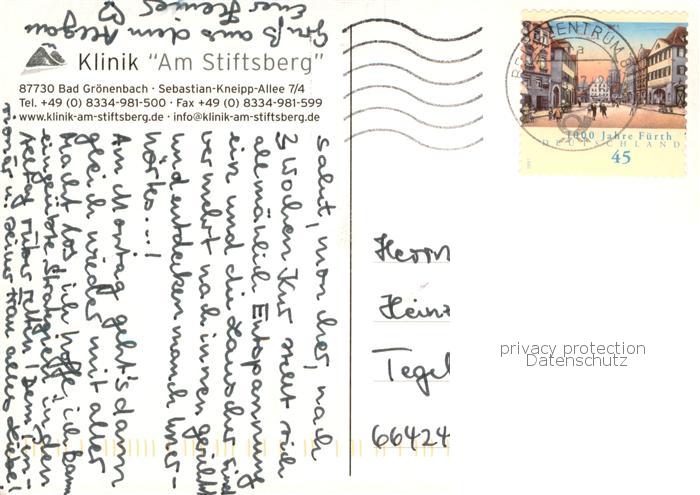 Klinik "Am Stiftsberg"
87730 Bad Grönenbach · Sebastian-Kneipp-Allee 7/4
Tel. +49 (0) 8334-981-500 · Fax +49 (0) 8334-981-599
www.klinik-am-stiftsberg.de · info@klinik-am-stiftsberg.de
salut, mon cher, nach
2 Wochen Kur stellt sich
allmählich Entspannung
ein und die Lauscher sind
vermehrt nach innen gerichtet
und entdecken manch Uner-
hörtes...!
Am Montag geht's dann
gleich wieder mit aller
Macht los, ich hoffe, ich kann
eingeübte Strategien in den
Alltag rüber retten! Dem
u. seiner Frau alles Liebe!
Gruß aus dem Allgäu
Euer
1000 Jahre Fürth
DEUTSCHLAND
45
BRIEFZENTRUM
Herrn
Heinz
Tegel
66424
privacy protection
Datenschutz